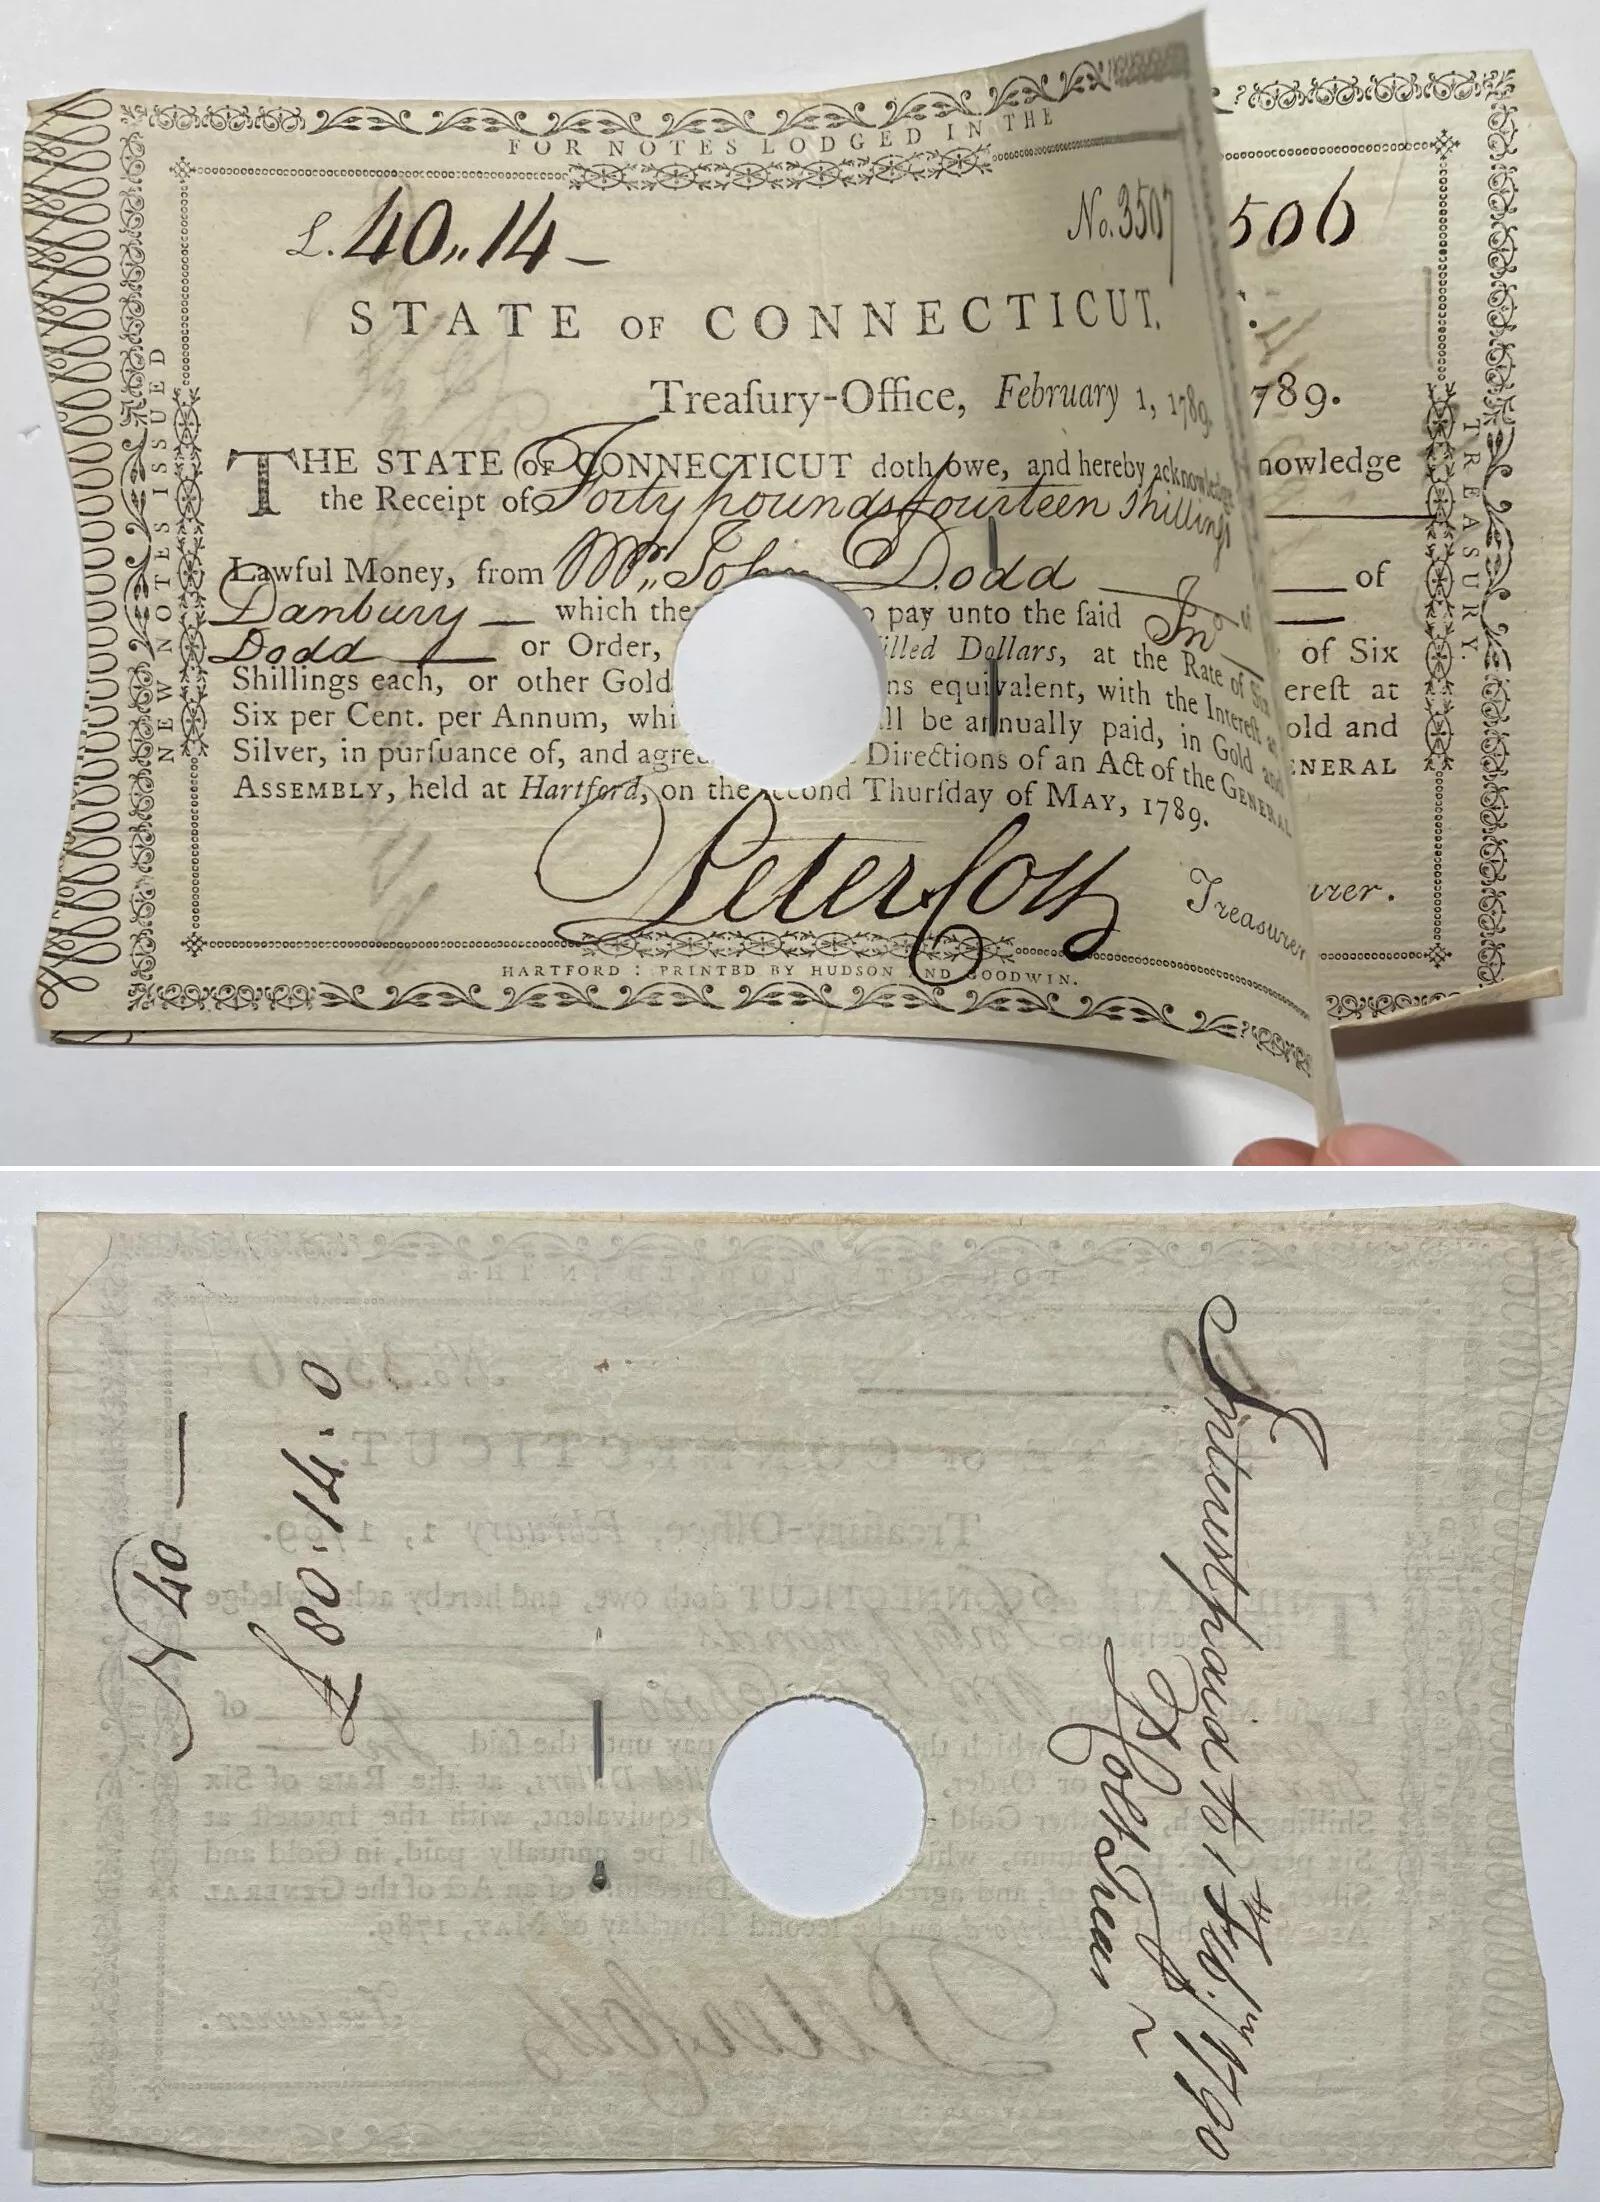 FOR NOTES LODGED IN THE
NEW NOTES ISSUED
TREASURY.
£. 40,, 14 –
No. 3507
506
STATE OF CONNECTICUT.
Treaſury-Office, February 1, 1789.
789.
THE STATE OF CONNECTICUT doth owe, and hereby acknowledge
nowledge
the Receipt of Forty pounds fourteen Shillings
Lawful Money, from Mr,, John Dodd
of
Danbury — which the
o pay unto the ſaid Jno
Dodd — or Order,
illed Dollars, at the Rate of Six
of Six
Shillings each, or other Gold
ns equivalent, with the Intereſt at
ereſt at
Six per Cent. per Annum, whi
ll be annually paid, in Gold and
old and
Silver, in purſuance of, and agree
Directions of an Act of the GENERAL
ENERAL
ASSEMBLY, held at Hartford, on the ſecond Thurſday of MAY, 1789.
Peter Colt Treasurer
urer.
HARTFORD: PRINTED BY HUDSON AND GOODWIN.
N 40 —
£ 80.. 14.. 0
Interest paid to 1st Feb.ry 1790
By
P Colt Treas